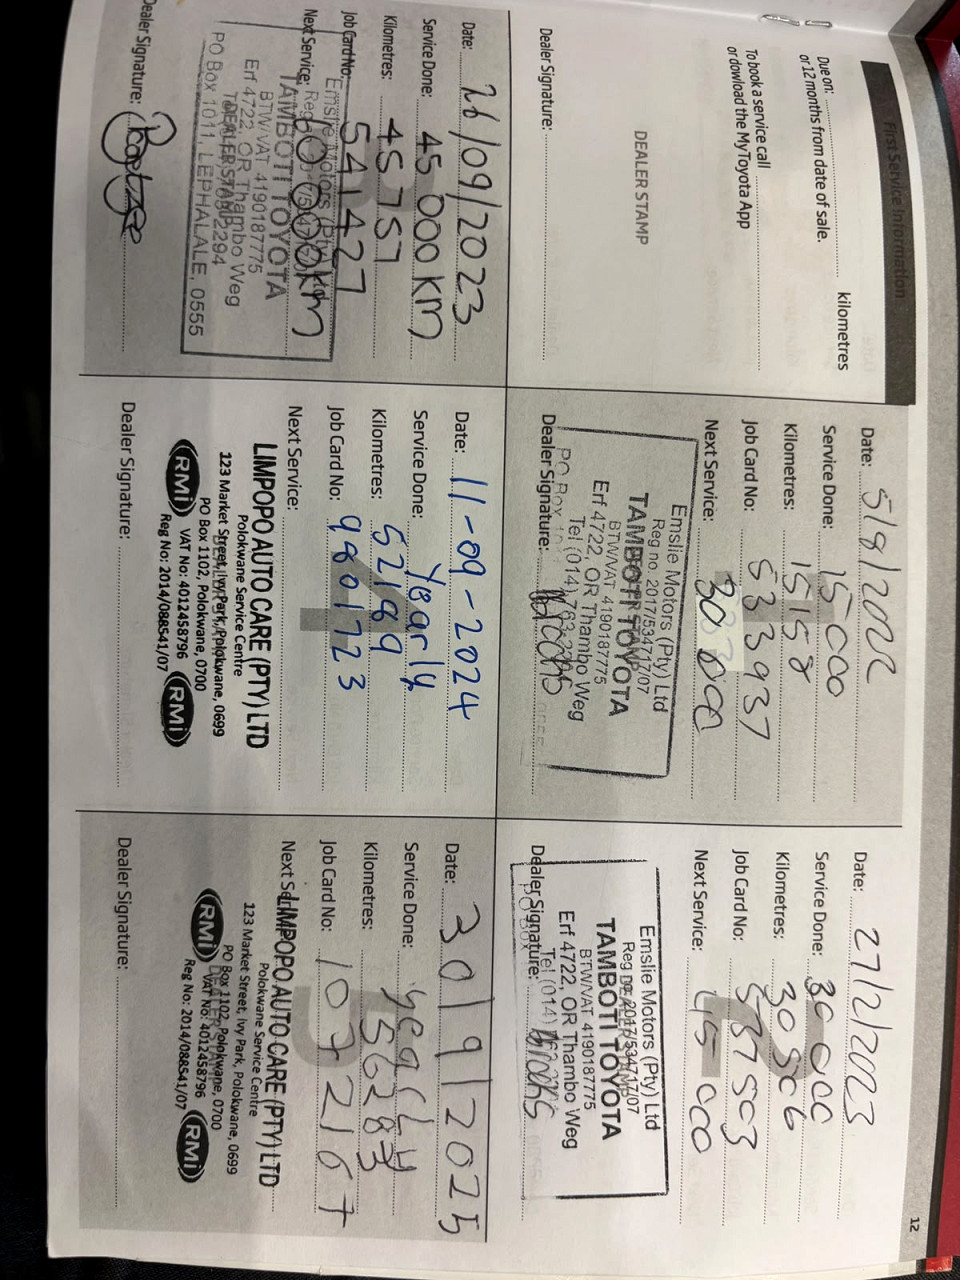 12
First Service Information
Due on: kilometres
or 12 months from date of sale.
To book a service call
or dowload the MyToyota App
DEALER STAMP
Dealer Signature:
Date: 5/8/2022
Service Done: 15 000
Kilometres: 15158
Job Card No: 533937
Next Service: 30 000
Emslie Motors (Pty) Ltd
Reg no. 2017/534717/07
TAMBOTI TOYOTA
BTW/VAT 4190187775
Erf 4722, OR Thambo Weg
Tel (014) 763 2294
PO Box
Dealer Signature:
Date: 27/2/2023
Service Done: 30 000
Kilometres: 30506
Job Card No: 537503
Next Service: 45 000
Emslie Motors (Pty) Ltd
Reg 2017/534717/07
TAMBOTI TOYOTA
BTW/VAT 4190187775
Erf 4722, OR Thambo Weg
Tel (014)
PO Box
Dealer Signature:
Date: 26/09/2023
Service Done: 45 000 KM
Kilometres: 45757
Job Card No: 541427
Next Service: 60 000km
Emslie Motors (Pty) Ltd
TAMBOTI TOYOTA
BTW/VAT 4190187775
Erf 4722, OR Thambo Weg
DEALER STAMP
PO Box 1011, LEPHALALE, 0555
Dealer Signature:
4
Date: 11-09-2024
Service Done: Yearly
Kilometres: 52189
Job Card No: 9801723
Next Service:
LIMPOPO AUTO CARE (PTY) LTD
Polokwane Service Centre
123 Market Street, Ivy Park, Polokwane, 0699
PO Box 1102, Polokwane, 0700
RMi VAT No: 4012458796 RMi
Reg No: 2014/088541/07
Dealer Signature:
5
Date: 30/9/2025
Service Done: yearly
Kilometres: 56283
Job Card No: 1072167
Next Service:
LIMPOPO AUTO CARE (PTY) LTD
Polokwane Service Centre
123 Market Street, Ivy Park, Polokwane, 0699
PO Box 1102, Polokwane, 0700
RMi VAT No: 4012458796 RMi
Reg No: 2014/088541/07
Dealer Signature: